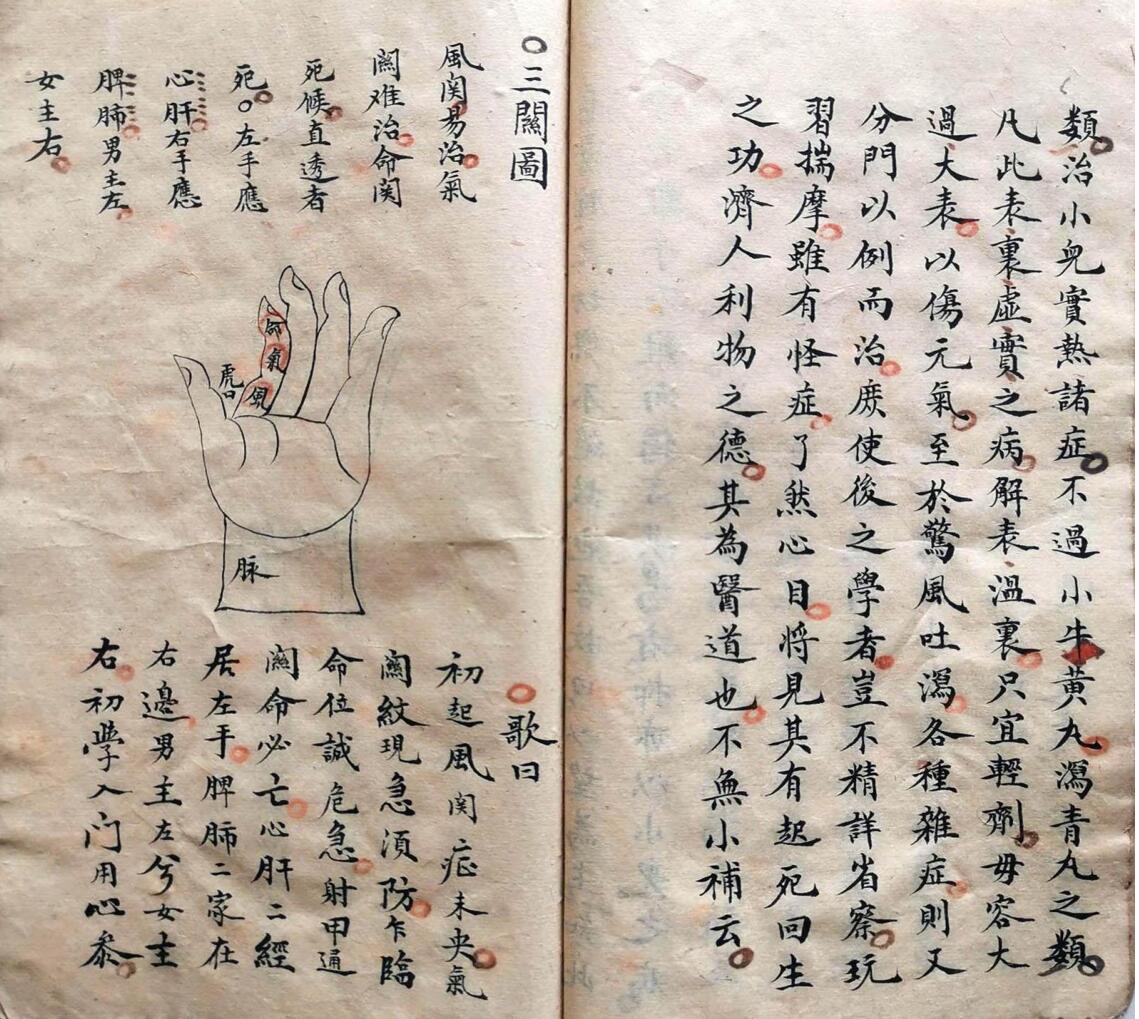 類治小兒實熱諸症不過小牛黃丸瀉青丸之類
凡此表裏虛實之病解表溫裏只宜輕劑毋容大
過大表以傷元氣至於驚風吐瀉各種雜症則又
分門以例而治庶使後之學者豈不精詳省察玩
習揣摩雖有怪症了然心目将見其有起死回生
之功濟人利物之德其為醫道也不無小補云
三關圖
風関易治氣
關难治命関
死候直透者
死左手應
心肝右手應
脾肺男主左
女主右
命
氣
風
虎口
脉
歌曰
初起風関症未央氣
關紋現急須防乍臨
命位誠危急射甲通
關命必亡心肝二經
居左手脾肺二家在
右邊男主左兮女主
右初學入门用心叅